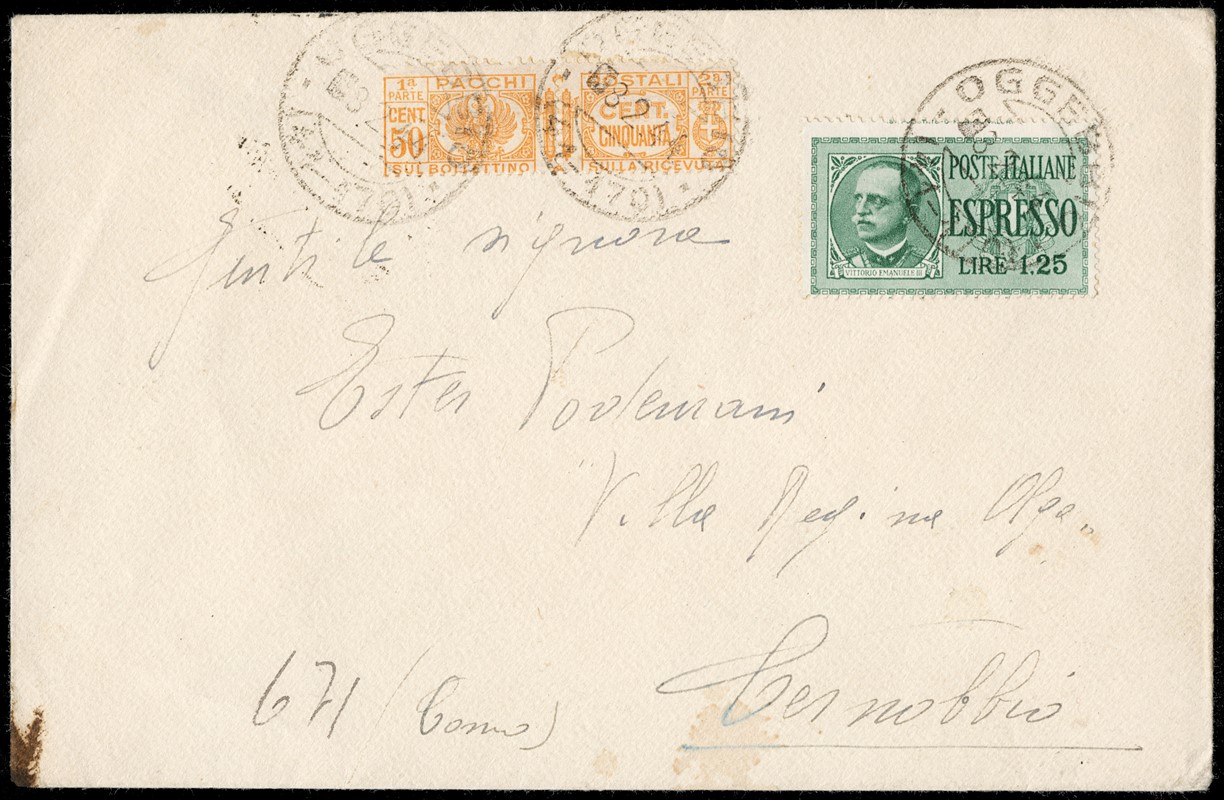 1ª PARTE PACCHI POSTALI 2ª PARTE
CENT. 50 CENT. CINQUANTA
(SUL BOLLETTINO) SULLA RICEVUTA
POSTE ITALIANE
ESPRESSO
LIRE 1.25
VITTORIO EMANUELE III
Gentile signora
Ester
Villa Regina Olga
Cernobbio
671 (Como)